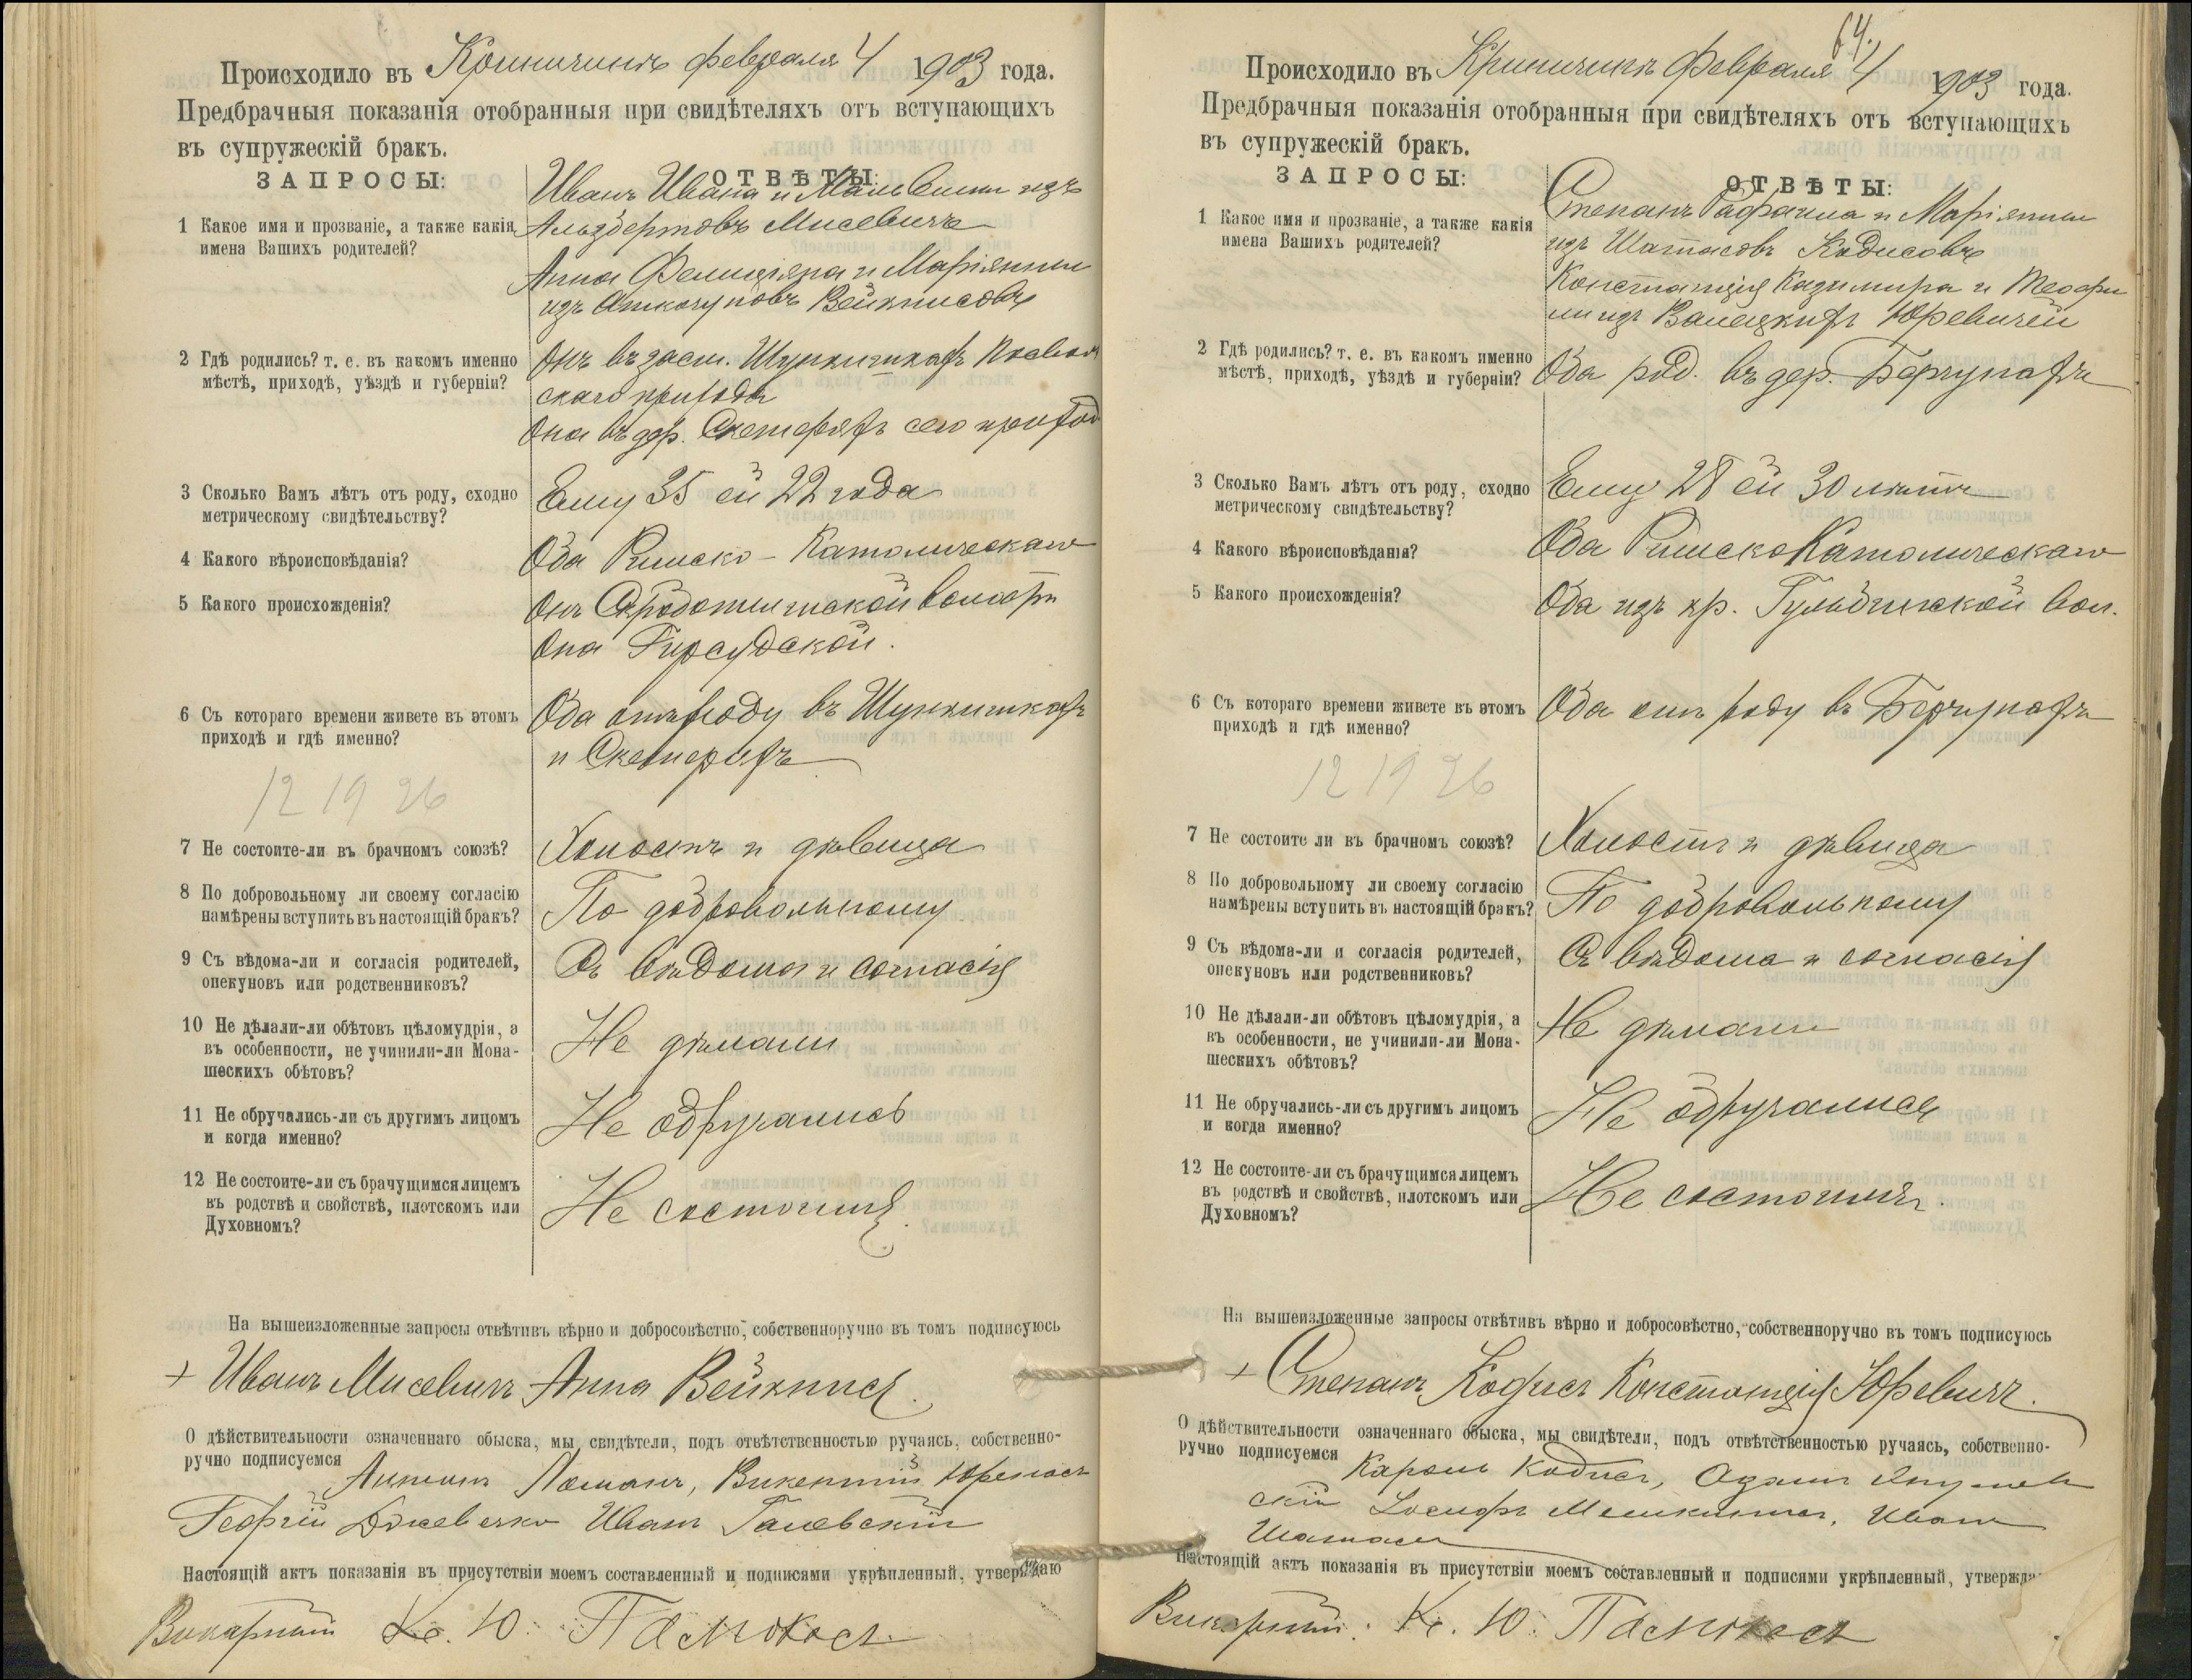 Происходило въ Криничинъ февраля 4 1903 года.
Предбрачныя показанія отобранныя при свидѣтеляхъ отъ вступающихъ
въ супружескій бракъ.
ЗАПРОСЫ: ОТВѢТЫ:
Иванъ Ивана и Мальвины изъ
1 Какое имя и прозваніе, а также какія имена Вашихъ родителей?
Мисевичъ
Анна Фелиціяна и Маріянны
изъ
2 Гдѣ родились? т. е. въ какомъ именно мѣстѣ, приходѣ, уѣздѣ и губерніи?
Онъ въ заст.
скаго прихода
Она въ дер. сего прихода
3 Сколько Вамъ лѣтъ отъ роду, сходно метрическому свидѣтельству?
Ему 35 ей 22 года
4 Какого вѣроисповѣданія?
Оба Римско-Католическаго
5 Какого происхожденія?
Онъ волости
Она Гирсудской.
6 Съ котораго времени живете въ этомъ приходѣ и гдѣ именно?
Оба отъ роду въ
и
12 19 26
7 Не состоите-ли въ брачномъ союзѣ?
Холостъ и дѣвица
8 По добровольному ли своему согласію намѣрены вступить въ настоящій бракъ?
По добровольному
9 Съ вѣдома-ли и согласія родителей, опекуновъ или родственниковъ?
Съ вѣдома и согласія
10 Не дѣлали-ли обѣтовъ цѣломудрія, а въ особенности, не учинили-ли Мона-
шескихъ обѣтовъ?
Не дѣлали
11 Не обручались-ли съ другимъ лицомъ и когда именно?
Не обручались
12 Не состоите-ли съ брачущимся лицемъ въ родствѣ и свойствѣ, плотскомъ или Духовномъ?
Не состоимъ.
На вышеизложенные запросы отвѣтивъ вѣрно и добросовѣстно, собственноручно въ томъ подписуюсь
+ Иванъ Мисевичъ Анна Вейкнисъ.
О дѣйствительности означеннаго обыска, мы свидѣтели, подъ отвѣтственностью ручаясь, собственно-
ручно подписуемся
Антонъ Ломанъ, Викентій Юренасъ
Георгій Иванъ Галевскій
Настоящій актъ показанія въ присутствіи моемъ составленный и подписями укрѣпленный, утверждаю
Викарный Кс. Ю.
64.
Происходило въ Криничинъ Февраля 4 1903 года.
Предбрачныя показанія отобранныя при свидѣтеляхъ отъ вступающихъ
въ супружескій бракъ.
ЗАПРОСЫ: ОТВѢТЫ:
1 Какое имя и прозваніе, а также какія имена Вашихъ родителей?
Степанъ Рафаила и Маріянны
изъ Шатасовъ Кодисовъ
Констанція Казимира и Теофи
лии изъ Валецкихъ Юревичей
2 Гдѣ родились? т. е. въ какомъ именно мѣстѣ, приходѣ, уѣздѣ и губерніи?
Оба род. въ дер. Берчунахъ
3 Сколько Вамъ лѣтъ отъ роду, сходно метрическому свидѣтельству?
Ему 28 ей 30 лѣтъ
4 Какого вѣроисповѣданія?
Оба Римско Католическаго
5 Какого происхожденія?
Оба изъ кр. Гульбинской вол.
6 Съ котораго времени живете въ этомъ приходѣ и гдѣ именно?
Оба отъ роду въ Берчунахъ
12 19 26
7 Не состоите ли въ брачномъ союзѣ?
Холостъ и дѣвица
8 По добровольному ли своему согласію намѣрены вступить въ настоящій бракъ?
По добровольному
9 Съ вѣдома-ли и согласія родителей, опекуновъ или родственниковъ?
Съ вѣдома и согласія
10 Не дѣлали-ли обѣтовъ цѣломудрія, а въ особенности, не учинили-ли Мона-
шескихъ обѣтовъ?
Не дѣлали
11 Не обручались-ли съ другимъ лицомъ и когда именно?
Не обручались
12 Не состоите-ли съ брачущимся лицемъ въ родствѣ и свойствѣ, плотскомъ или Духовномъ?
Не состоимъ.
На вышеизложенные запросы отвѣтивъ вѣрно и добросовѣстно, собственноручно въ томъ подписуюсь
+ Степанъ Кодисъ Констанція Юревичъ.
О дѣйствительности означеннаго обыска, мы свидѣтели, подъ отвѣтственностью ручаясь, собственно-
ручно подписуемся
Кароль Кодисъ, Адамъ
скій Іосифъ Иванъ
Шатасъ
Настоящій актъ показанія въ присутствіи моемъ составленный и подписями укрѣпленный, утвержда
Викарный: Кс. Ю.